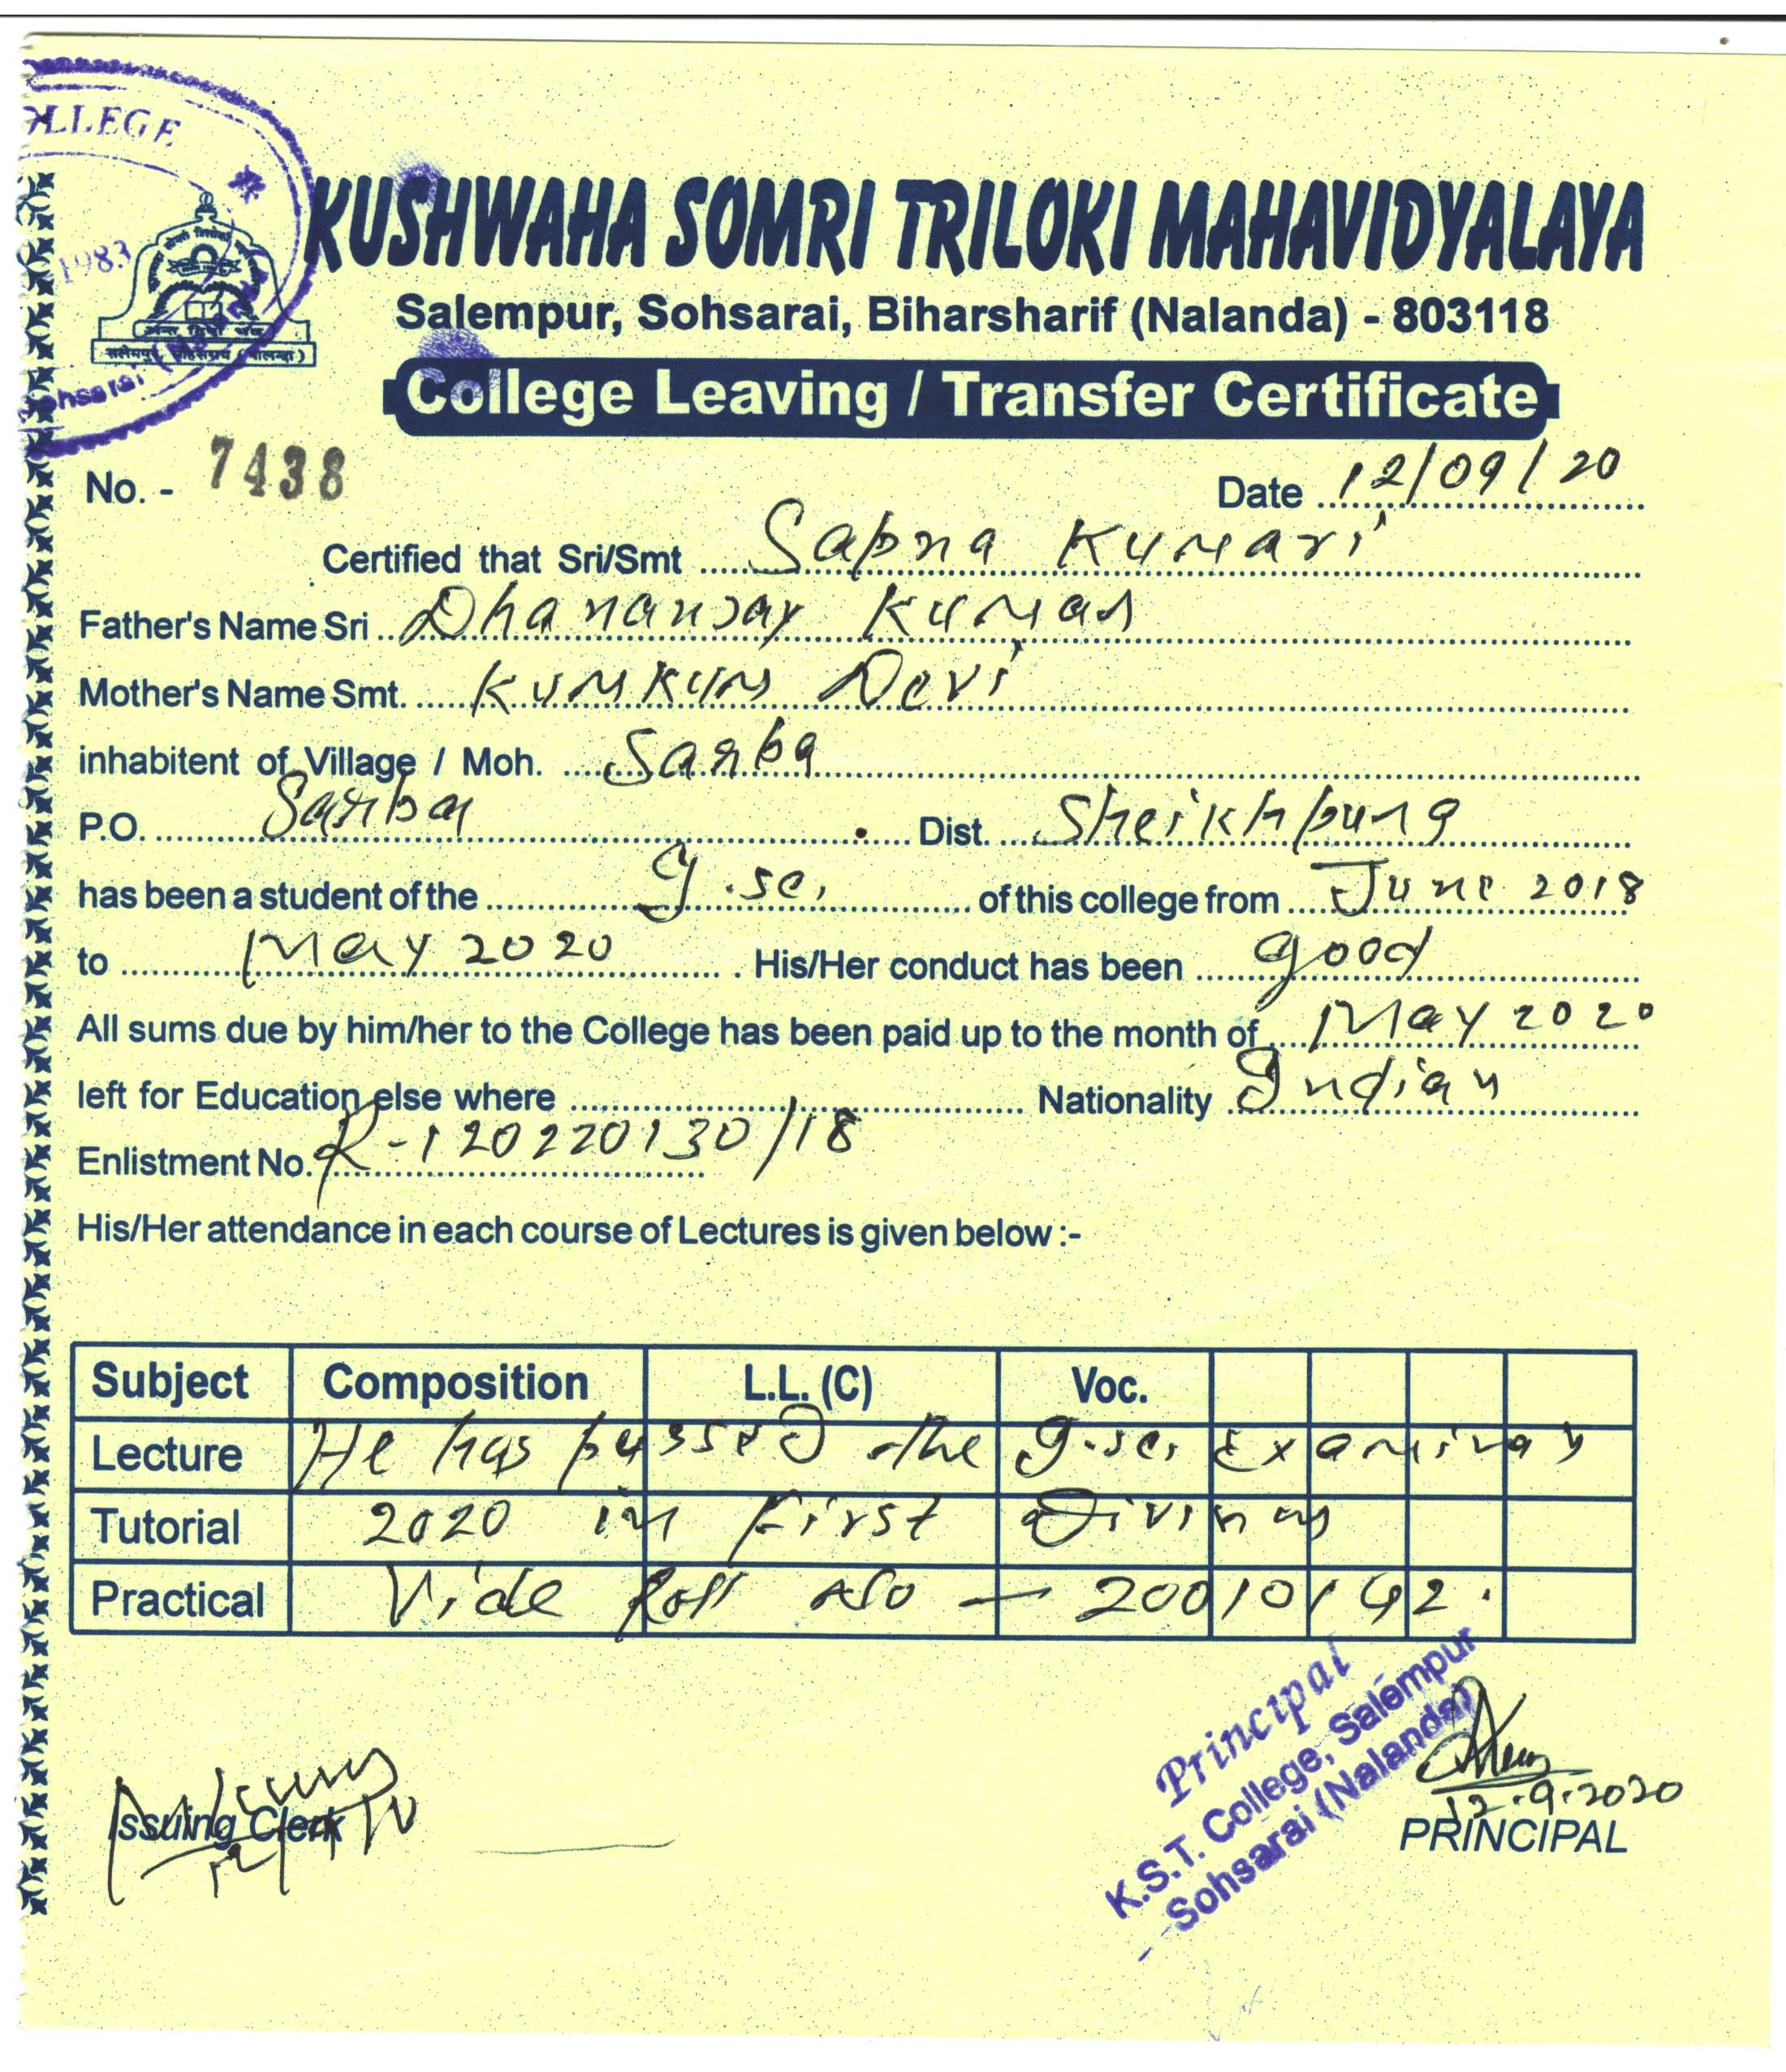 COLLEGE
1983
KUSHWAHA SOMRI TRILOKI MAHAVIDYALAYA
Salempur, Sohsarai, Biharsharif (Nalanda) - 803118
College Leaving / Transfer Certificate
No. - 7438 Date 12/09/20
Certified that Sri/Smt Sapna Kumari
Father's Name Sri Dhananjay Kumar
Mother's Name Smt. Kumkum Devi
inhabitent of Village / Moh. Sarba
P.O. Sarba Dist. Sheikhpura
has been a student of the I.Sc. of this college from June 2018
to May 2020 . His/Her conduct has been good
All sums due by him/her to the College has been paid up to the month of May 2020
left for Education else where Nationality Indian
Enlistment No. R-120220130/18
His/Her attendance in each course of Lectures is given below :-
Subject Composition L.L. (C) Voc.
Lecture He has passed the I.Sc. Examination
Tutorial 2020 in First Division
Practical Vide Roll No - 20010142.
Principal
K.S.T. College, Salempur
Sohsarai (Nalanda)
12.9.2020
Issuing Clerk PRINCIPAL